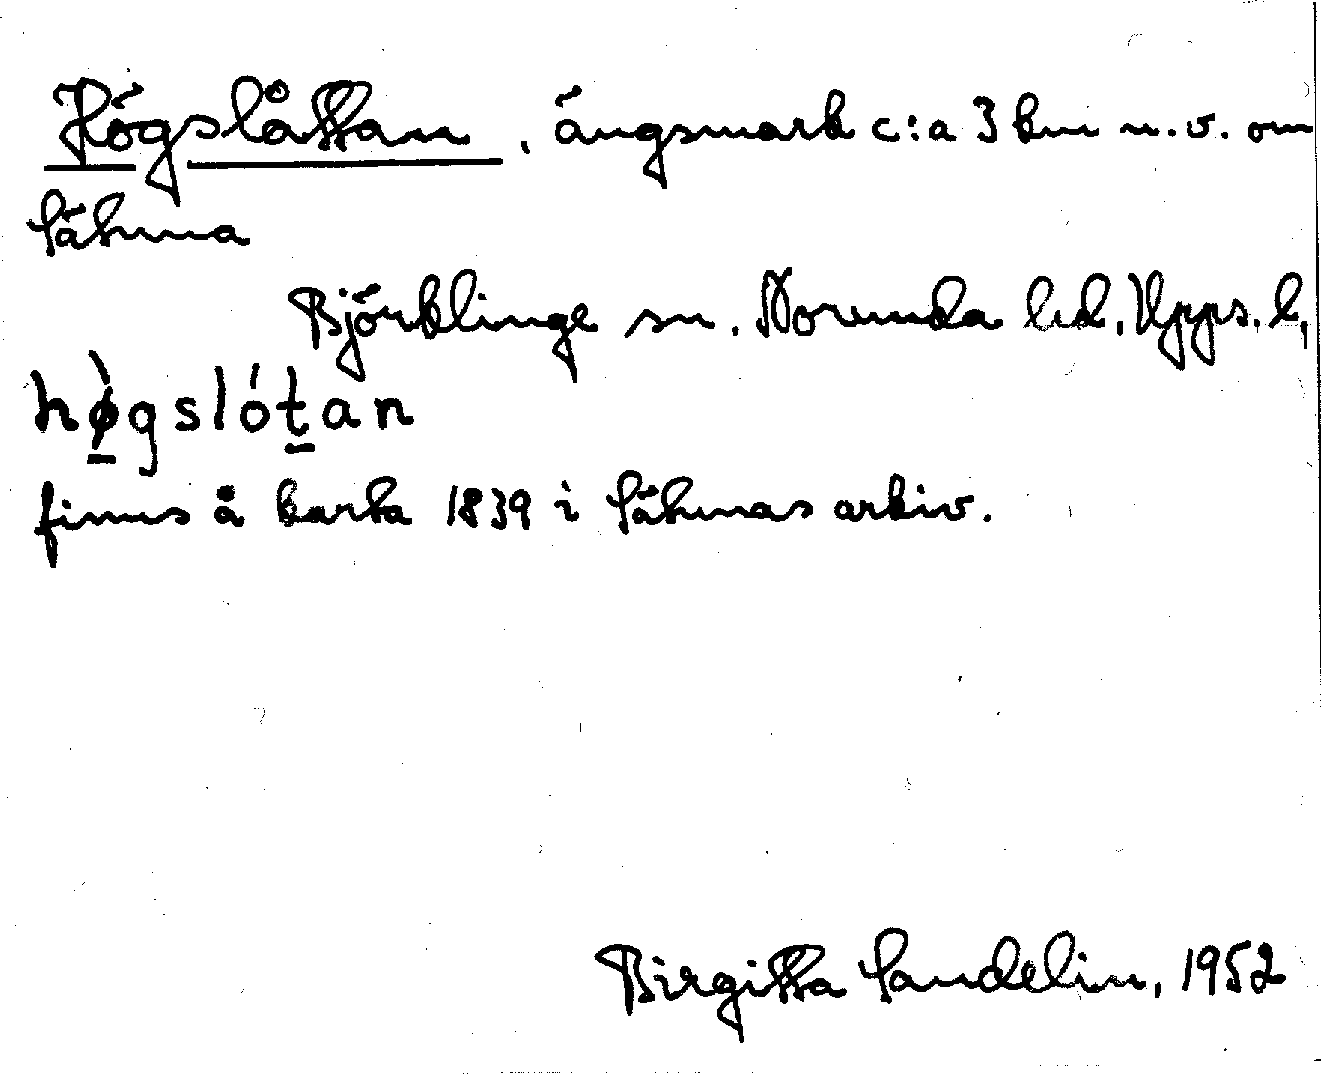 Högslåttan, ängsmark c:a 3 km n.v. om
Sätuna
Björklinge sn. Norunda hd. Upps. l.
hø̀gslótan
finns å karta 1839 i Sätunas arkiv.
Birgitta Sandelin, 1952